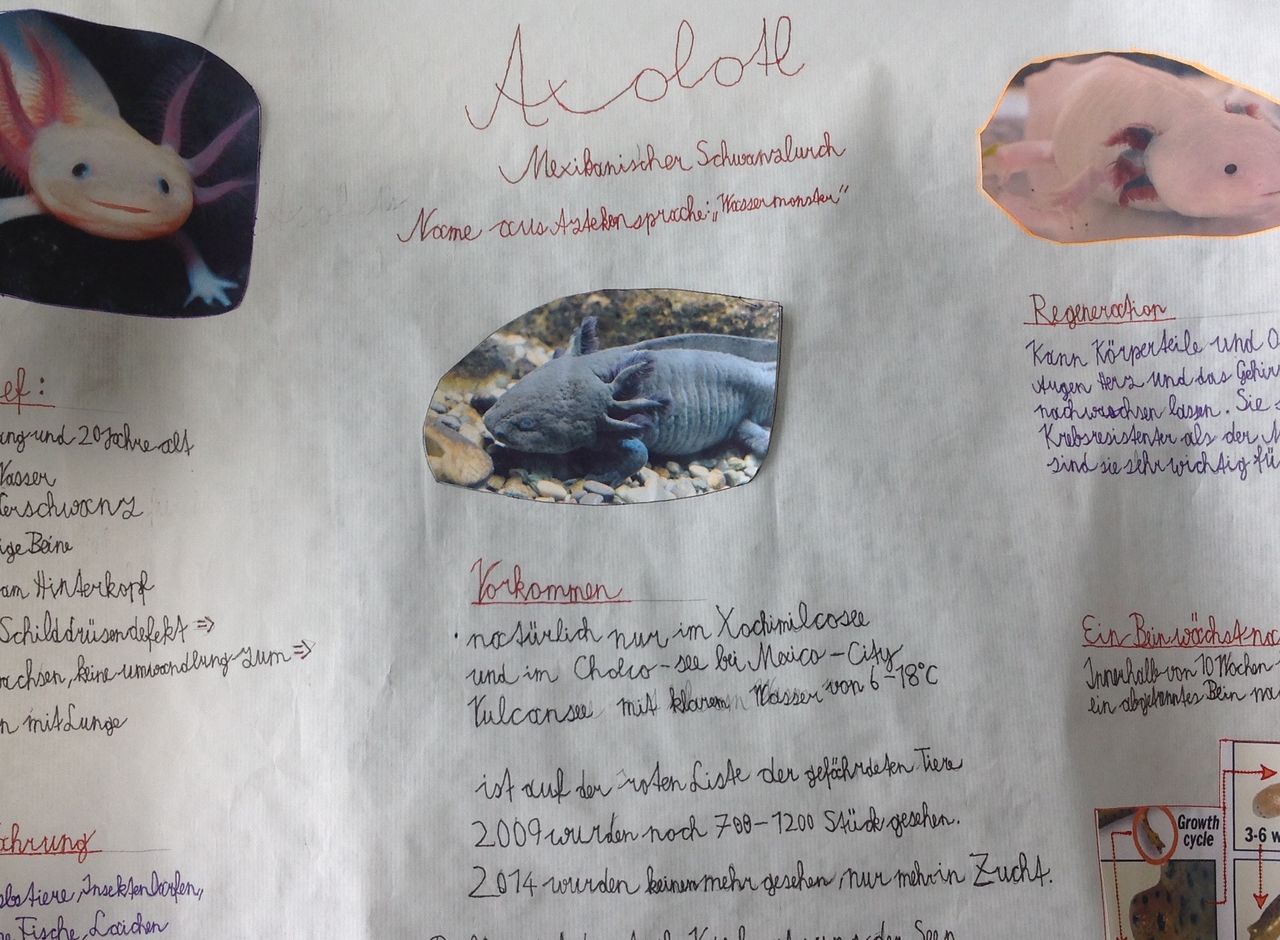 Axolotl
Mexikanischer Schwanzlurch
Name aus Aztekensprache: „Wassermonster"
ef:
ang und 20 Jahre alt
Wasser
erschwanz
ige Beine
am Hinterkopf
Schilddrüsendefekt =>
achsen, keine umwandlung zum =>
n mit Lunge
ahrung
bstiere, Insektenlarfen,
e Fische, Laichen
Vorkommen
• natürlich nur im Xochimilcosee
und im Cholco-see bei Mexico-City
Vulcansee mit klarem Wasser von 6-18°C
ist auf der roten Liste der gefährdeten Tiere
2009 wurden noch 700-1200 Stück gesehen.
2014 wurden keinen mehr gesehen, nur mehr in Zucht.
Regeneration
Kann Körperteile und O
Augen Herz und das Gehir
nachwachsen lassen. Sie
Krebsresistenter als der M
sind sie sehr wichtig fü
Ein Bein wächst na
Innerhalb von 10 Wochen
ein abgetrenntes Bein na
Growth
cycle
3-6 w